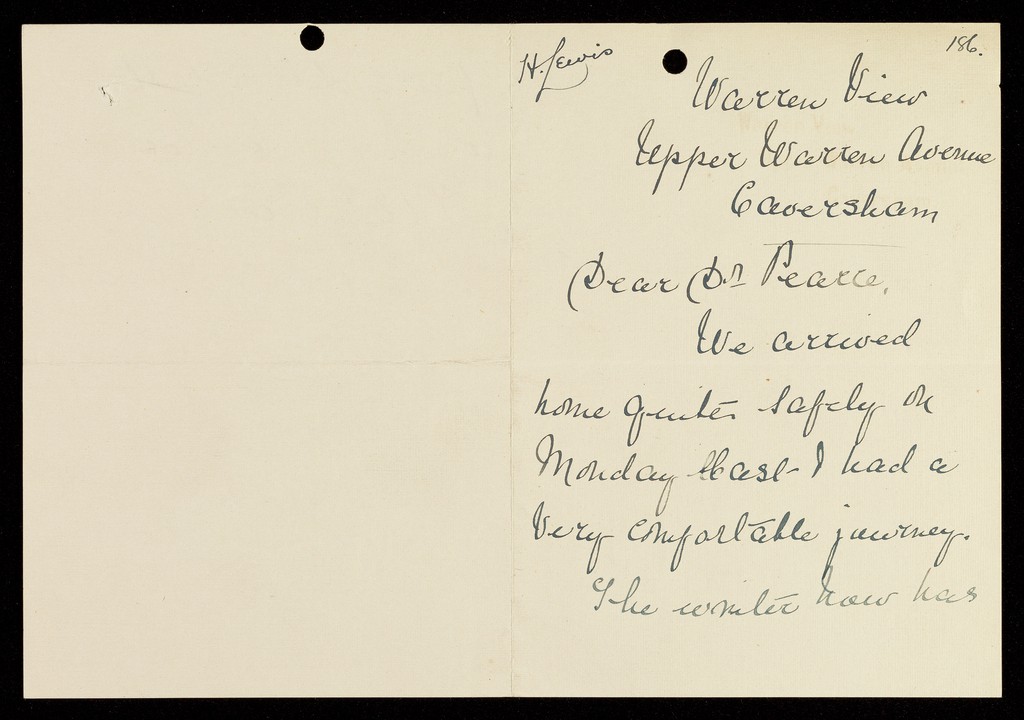 H. Lewis
186.
Warren View
Upper Warren Avenue
Caversham
Dear Dr Pearce,
We arrived
home quite safely on
Monday last - I had a
very comfortable journey.
The writer now has